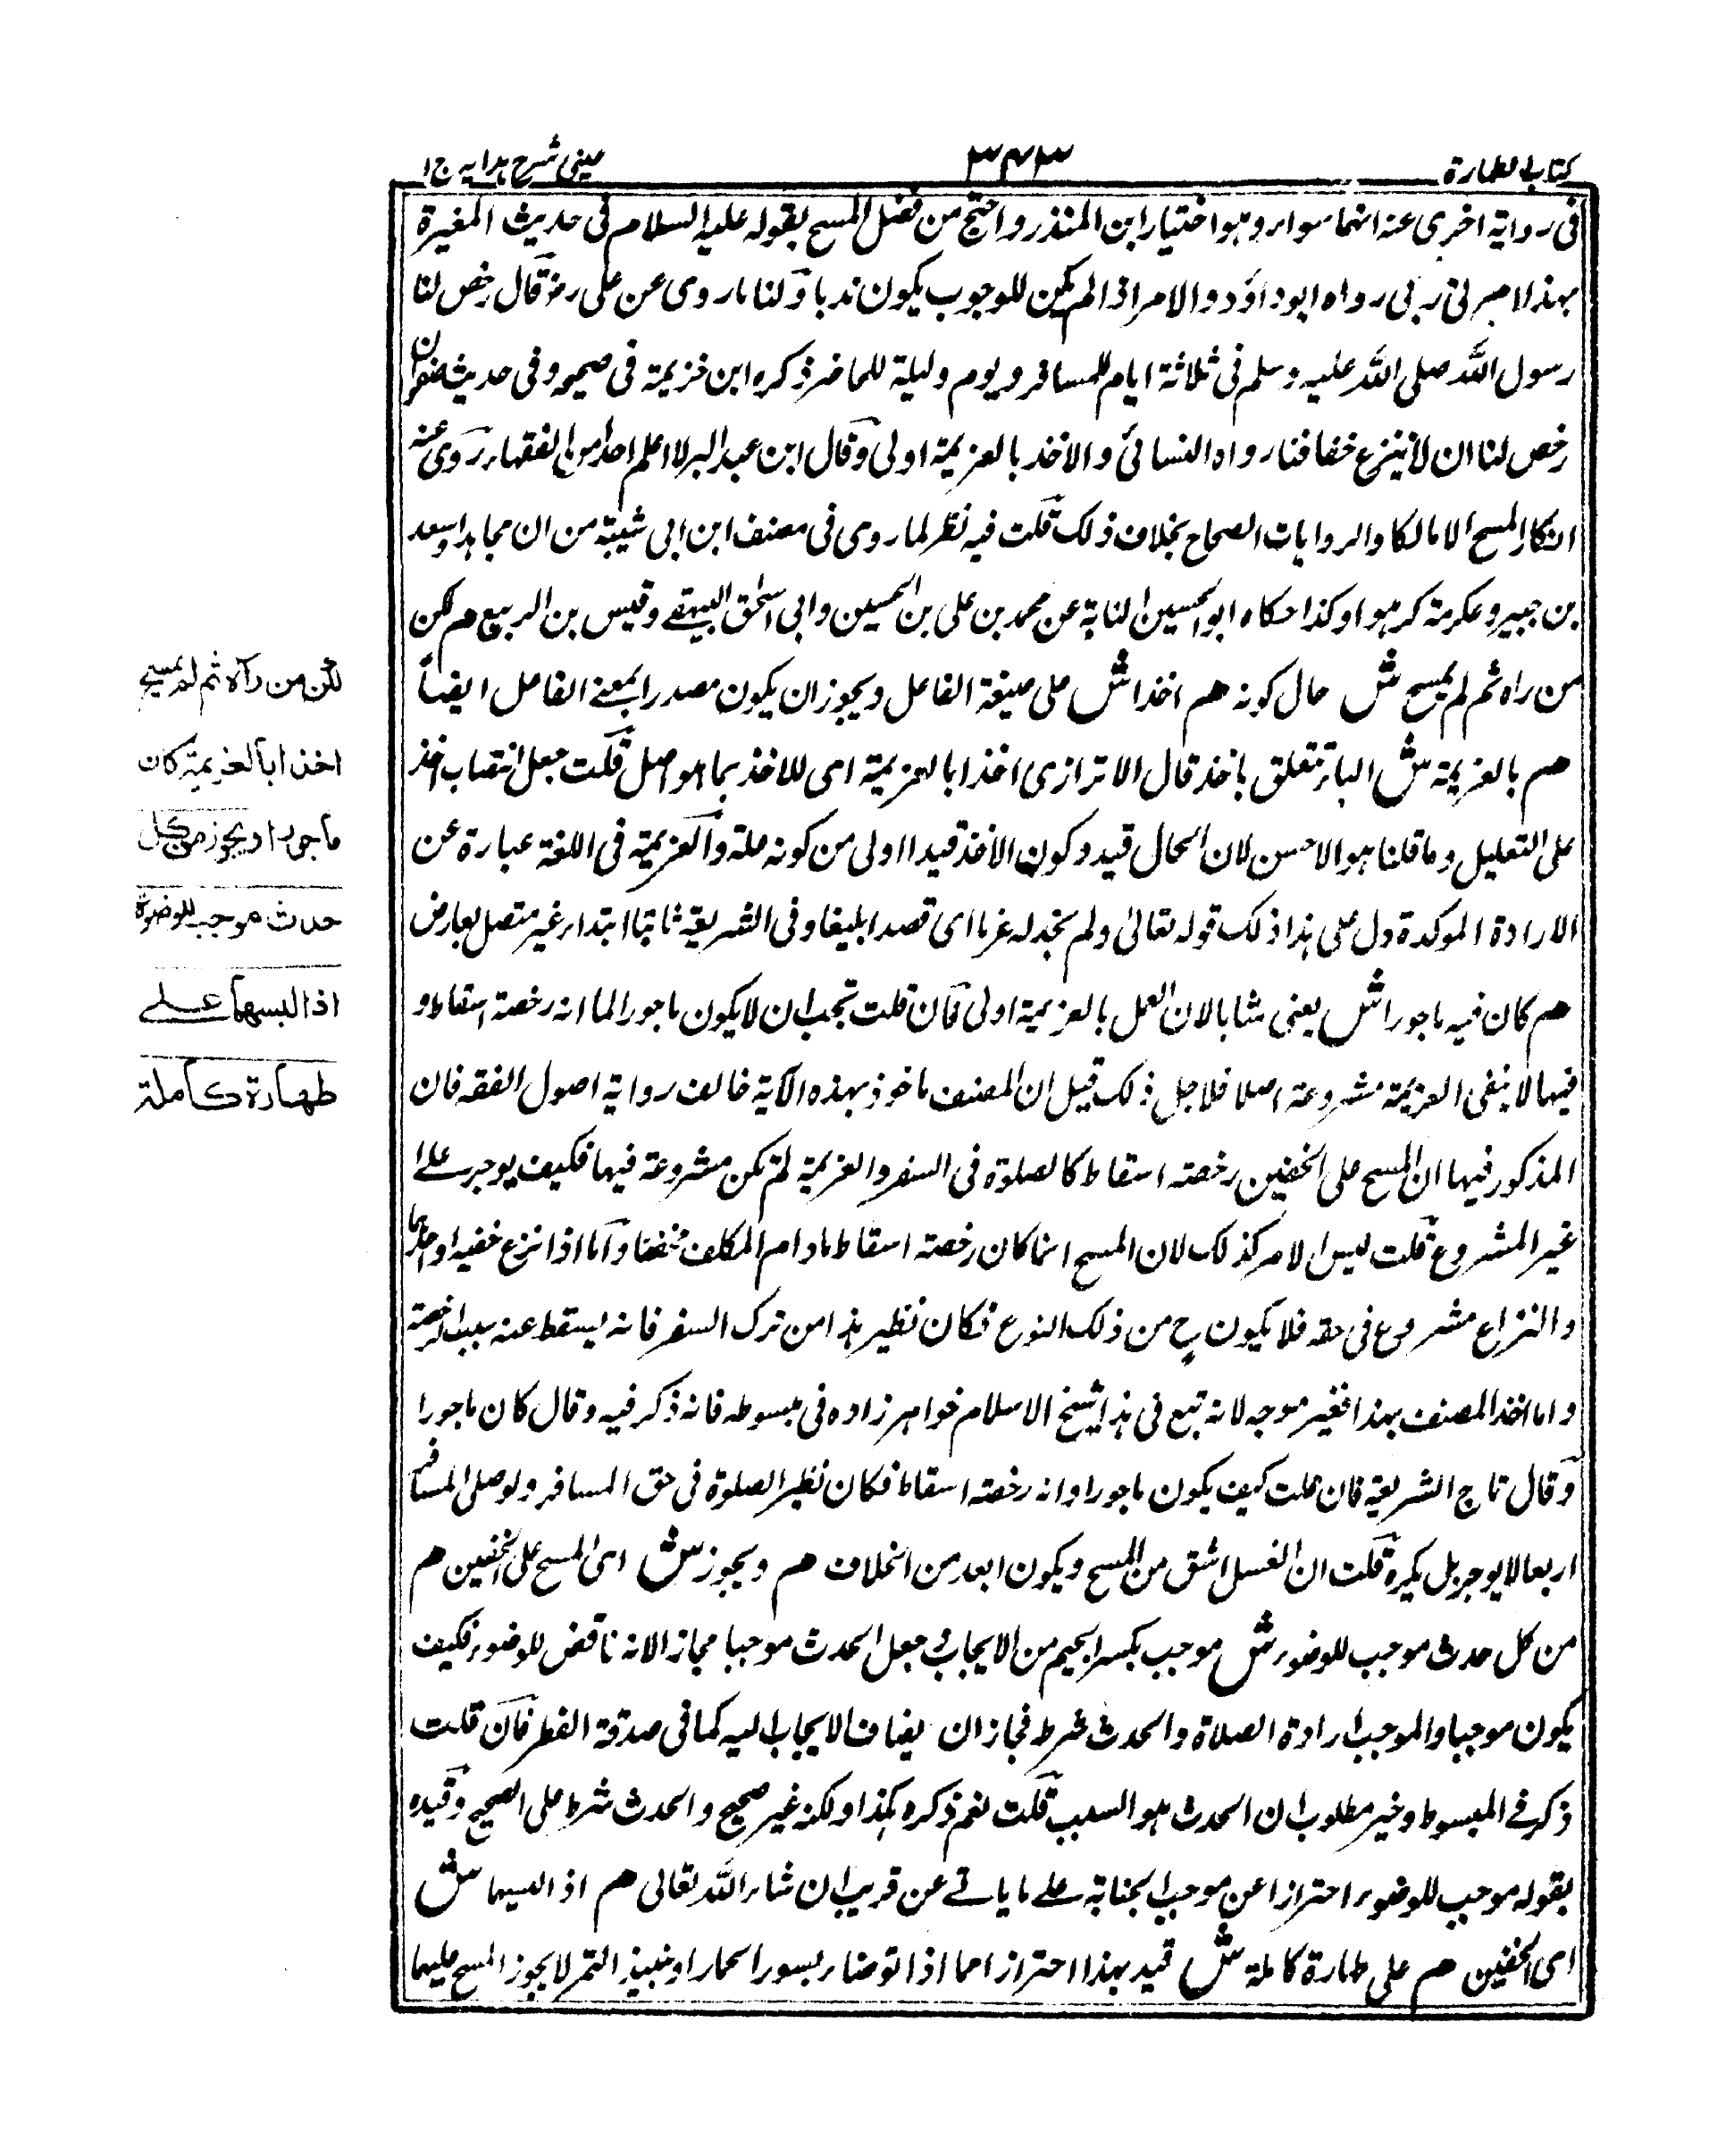 كتاب الطهارة
٣٤٣
عینی شرح ہدایہ ج ١
فی روایة اخری عنه انهما سواء وهو اختیار ابن المنذر واحتج من فضل المسح بقوله علیه السلام فی حدیث المغیرة
بهذا امرنی ربی رواه ابو داؤد والامر اذا لم یکن للوجوب یکون ندبا ولنا ما روی عن علی رض قال رخص لنا
رسول الله صلی الله علیه وسلم فی ثلاثة ایام للمسافر ویوم ولیلة للحاضر ذکره ابن خزیمة فی صحیحه وفی حدیث صفوان
رخص لنا ان لا ننزع خفافنا رواه النسائی والاخذ بالعزیمة اولی وقال ابن عبد البر لا اعلم احدا من الفقهاء روی عنه
انکار المسح الا مالکا والروایات الصحاح بخلاف ذلک قلت فیه نظر لما روی فی مصنف ابن ابی شیبة من ان مجاهدا وسعید
بن جبیر وعکرمة کرهوا وکذا حکاه ابو الحسین النسابة عن محمد بن علی بن الحسین وابی اسحٰق البیهقی وقیس بن الربیع م لکن
من راه ثم لم یمسح ش حال کونه م اخذا ش علی صیغة الفاعل ویجوز ان یکون مصدرا بمعنی الفاعل ایضاً
م بالعزیمة ش الباء تتعلق باخذ قال الاترازی اخذا بالعزیمة ای للاخذ بما هو اصل قلت جعل انتصاب اخذ
علی التعلیل وما قلنا هو الاحسن لان الحال قید وکون الاخذ قیدا اولی من کونه علة والعزیمة فی اللغة عبارة عن
الارادة الموکدة دل علی هذا ذلک قوله تعالیٰ ولم نجد له عزما ای قصدا بلیغا وفی الشریعة ثابتا ابتداء غیر متصل بعارض
م کان فیه ماجورا ش یعنی مثابا لان العمل بالعزیمة اولی فان قلت یجب ان لا یکون ماجورا لما انه رخصة اسقاط و
فیها لا ینفی العزیمة مشروعة اصلا فلاجل ذلک قیل ان المصنف ماخوذ بهذه الآیة خالف روایة اصول الفقه فان
المذکور فیها ان المسح علی الخفین رخصة اسقاط کالصلوة فی السفر والعزیمة لم تکن مشروعة فیها فکیف یوجر علی
غیر المشروع قلت لیس الامر کذلک لان المسح انما کان رخصة اسقاط ما دام المکلف متخففا واما اذا نزع خفیه او احدهما
والنزاع مشروع فی حقه فلا یکون ح من ذلک النوع فکان نظیر هذا من ترک السفر فانه یسقط عنه سبب الرخصة
واما اخذ المصنف بهذا فغیر موجه لانه تبع فی هذا شیخ الاسلام خواهر زاده فی مبسوطه فانه ذکر فیه وقال کان ماجورا
وقال تاج الشریعة فان قلت کیف یکون ماجورا وانه رخصة اسقاط فکان نظیر الصلوة فی حق المسافر ولو صلی المسافر
اربعا لا یوجر بل یکره قلت ان الغسل اشق من المسح ویکون ابعد من الخلاف م ویجوز ش ای المسح علی الخفین م
من کل حدث موجب للوضوء ش موجب بکسر الجیم من الایجاب فی جعل الحدث موجبا مجاز الانه ناقض للوضوء فکیف
یکون موجبا والموجب ارادة الصلاة والحدث شرط فجاز ان یضاف الایجاب الیه کما فی صدقة الفطر فان قلت
ذکر فی المبسوط وخیر مطلوب ان الحدث هو السبب قلت نعم ذکره هکذا ولکنه غیر صحیح والحدث شرط علی الصحیح وقیده
بقوله موجب للوضوء احترازا عن موجب الجنابة علی ما یاتی عن قریب ان شاء الله تعالی م اذا لبسهما ش
ای الخفین م علی طهارة کاملة ش قید بهذا احترازا عما اذا توضاء بسور الحمار او نبیذ التمر لا یجوز المسح علیهما
لكن من رآه ثم لم يمسح
اخذا بالعزيمة كان
ماجورا ويجوز من كل
حدث موجب للوضوء
اذا لبسهما على
طهارة كاملة